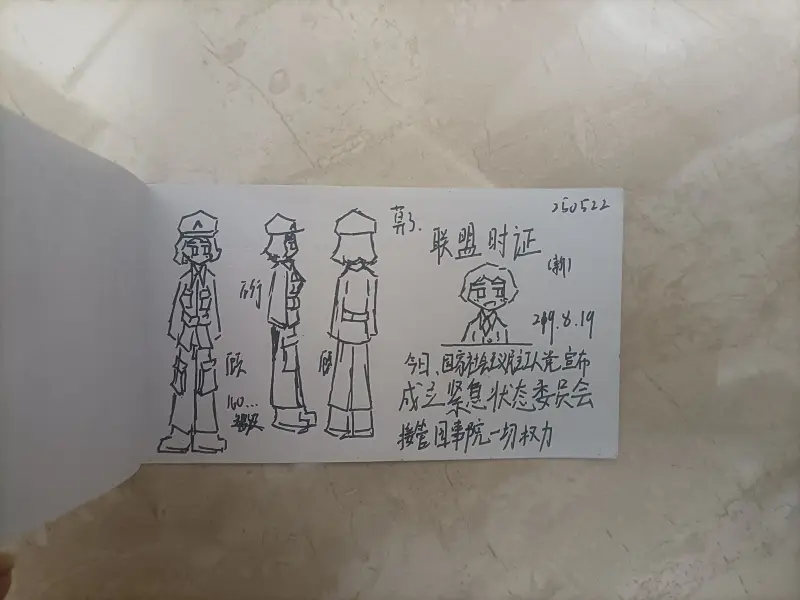 250522
算了.
联盟时证
(新)
249.8.19
今日、国家社会主义民主工人党宣布
成立紧急状态委员会
接管国事院一切权力
160...